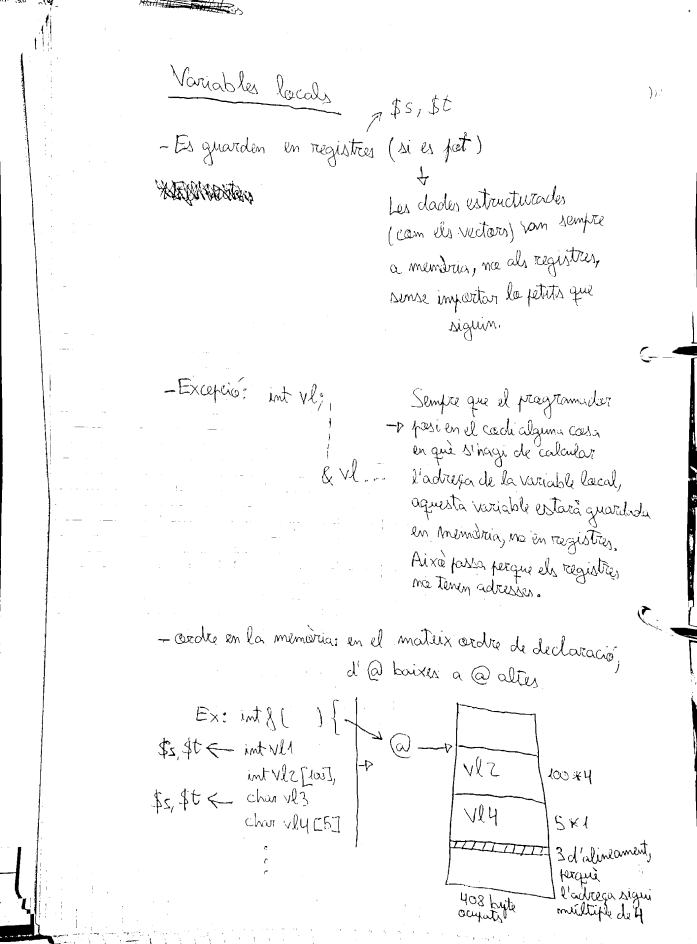 Variables locals
$s, $t
- Es guarden en registres (si es pot)
Les dades estructurades
(com els vectors) van sempre
a memòria, no als registres,
sense importar lo petits que
siguin.
- Excepció: int vl;
& vl...
Sempre que el programador
posi en el codi alguna cosa
en què s'hagi de calcular
l'adreça de la variable local,
aquesta variable estarà guardada
en memòria, no en registres.
Això passa perque els registres
no tenen adresses.
- ordre en la memòria: en el mateix ordre de declaració,
d'@ baixes a @ altes
Ex: int f( ) {
$s, $t ← int vl1
int vl2 [100],
$s, $t ← char vl3
char vl4 [5]
@
vl2
100*4
vl4
5*1
3 d'alineament,
perquè
l'adreça sigui
múltiple de 4
408 byte
ocupats